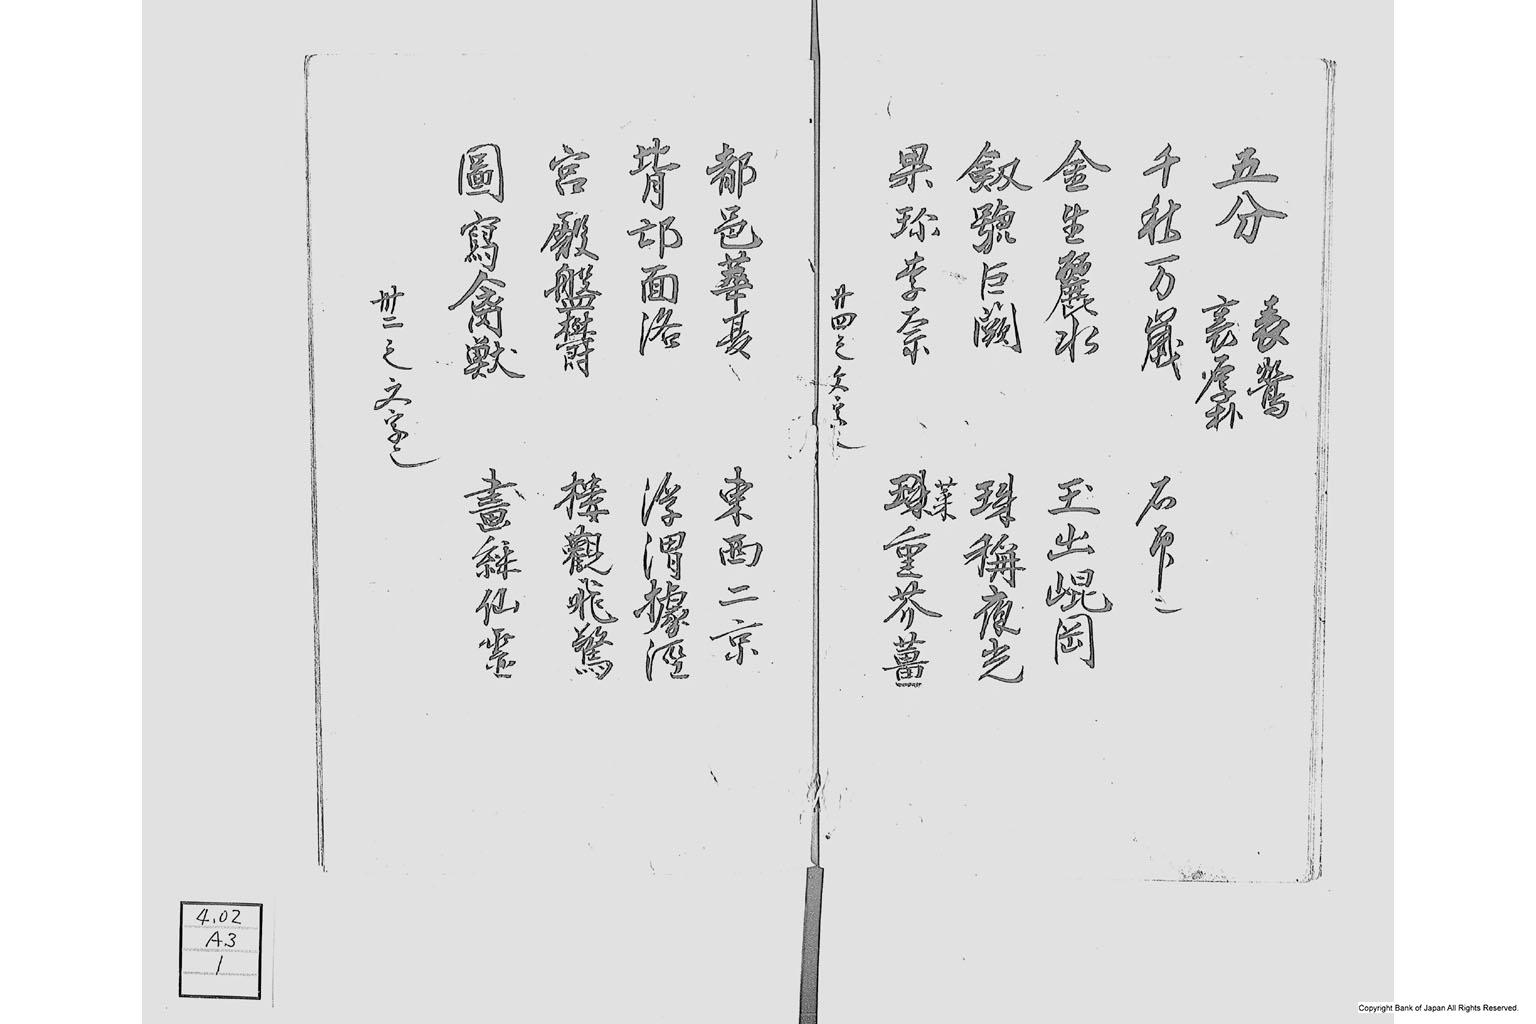 五分
表鷲
裏
千秋万歳 石
金生麗水 玉出崐岡
劔號巨闕 珠稱夜光
果珎李奈 珠重芥薑
菜
廿四之文字
都邑華夏 東西二京
背邙面洛 浮渭據涇
宮殿盤欝 楼觀飛驚
圖寫禽獣 畫綵仙霊
卅二之文字
4.02
A3
1
Copyright Bank of Japan All Rights Reserved.